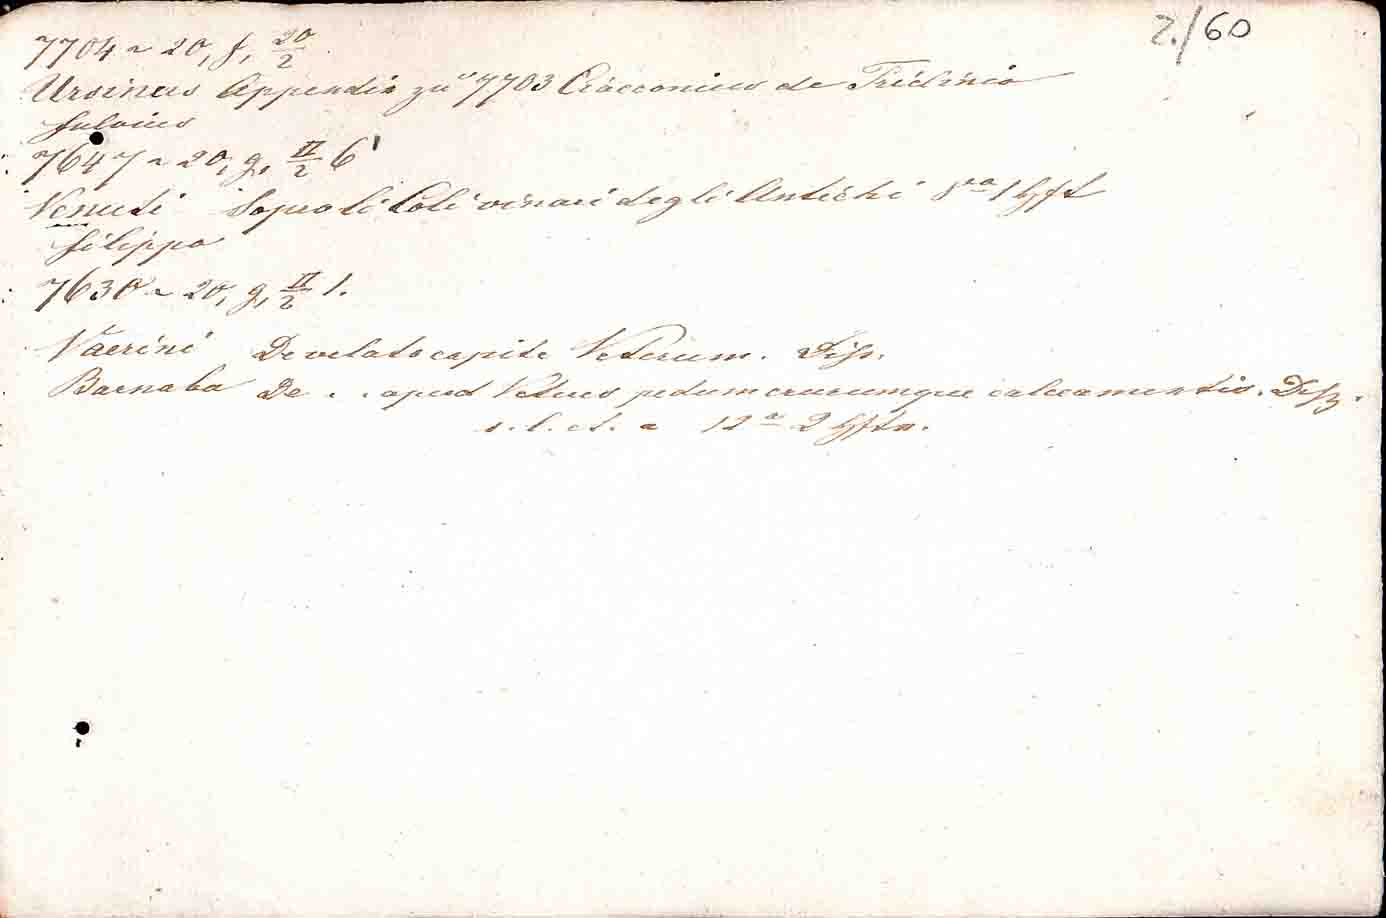 2./60
7704 ~ 20, f, 20/2
Ursinus Appendix zu 7703 Ciacconius de Triclinio
fulvius
7647 ~ 20, g, II/2 6
Venuti Sopra li Coli vinari degli Antichi 8va 1 hft
filippo
7630 ~ 20, g, II/2 1.
Vaerini De velato capite Veterum. Diss.
Barnaba De . . apud Veteres pedum crurumque calceamentis. Diss.
s. l. et. a 12a 2 hftn.